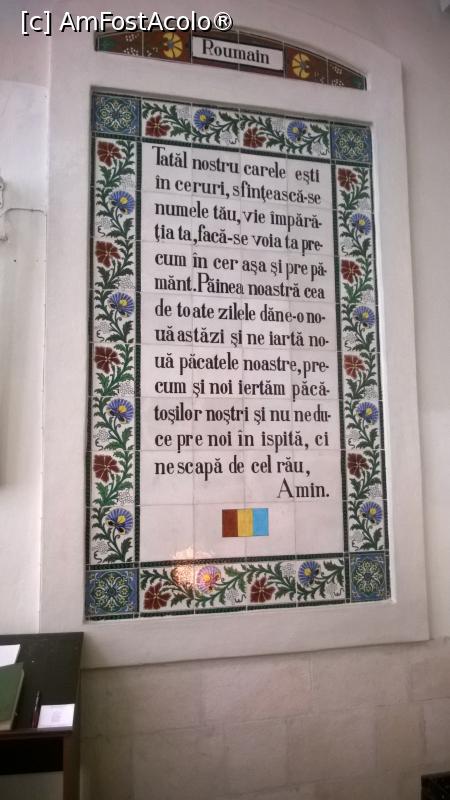 [c] AmFostAcolo®
Roumain
Tatăl nostru carele ești
în ceruri, sfințească-se
numele tău, vie împără-
ția ta, facă-se voia ta pre-
cum în cer așa și pre pă-
mânt. Pâinea noastră cea
de toate zilele dăne-o no-
uă astăzi și ne iartă no-
uă păcatele noastre, pre-
cum și noi iertăm păcă-
toșilor noștri și nu ne du-
ce pre noi în ispită, ci
ne scapă de cel rău,
Amin.